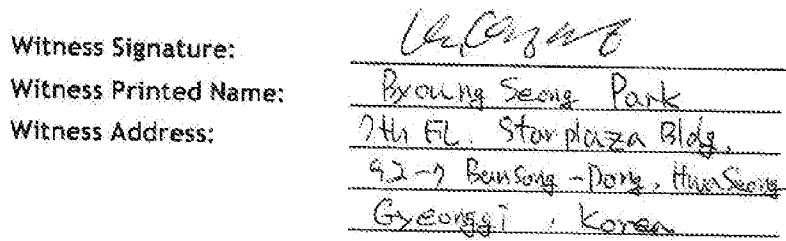 Witness Signature:
Witness Printed Name: Byoung Seong Park
Witness Address: 7th FL. Star plaza Bldg.
92-7 BanSong-Dong, HwaSeong
Gyeonggi, Korea